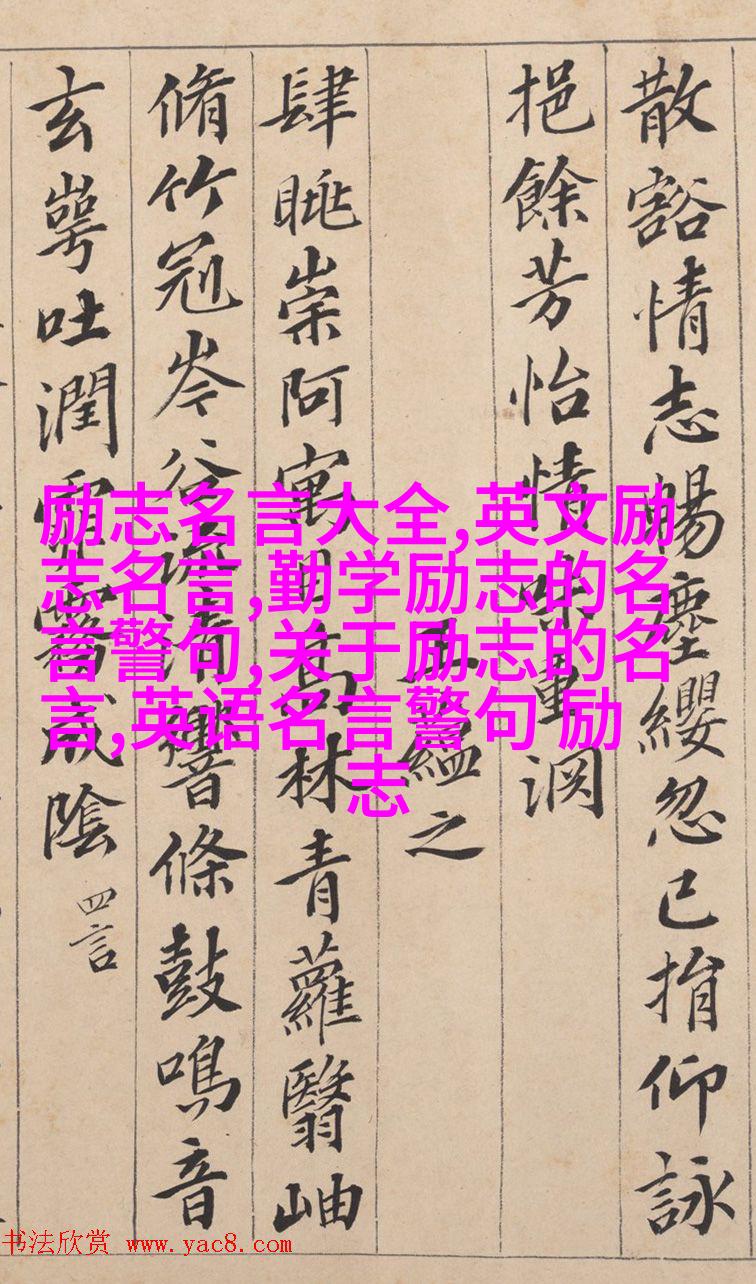 散豁情志暢塵纓忽已捐仰詠
挹餘芳怡情味重淵
王蘊之
肆眺崇阿寓目高林青蘿翳岫
脩竹冠岑谷流清響條鼓鳴音
玄崿吐潤霏霧成陰
四言
励志名言大全,英文励
志名言,勤学励志的名
言警句,关于励志的名
言,英语名言警句 励
志
书法欣赏 www.yac8.com